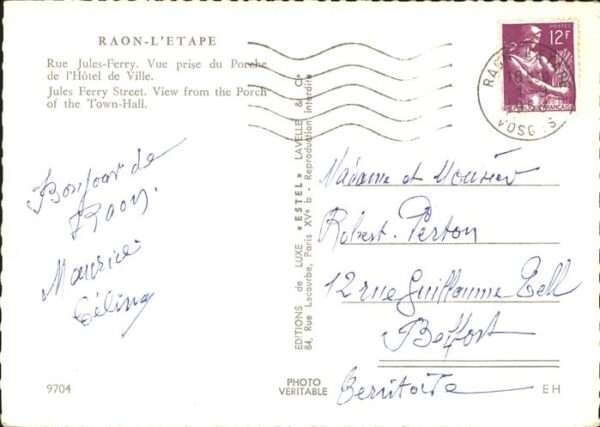 RAON-L'ETAPE
Rue Jules-Ferry. Vue prise du Porche
de l'Hôtel de Ville.
Jules Ferry Street. View from the Porch
of the Town-Hall.
Bonjour de
Raon.
Maurice
Céline
9704
EDITIONS de LUXE "ESTEL" LAVELLE & Cie
84, Rue Lecourbe, Paris XVe b - Reproduction interdite
PHOTO
VERITABLE
POSTES
12F
VOSGES
Madame et Monsieur
Robert Perton
12 rue Guillaume Tell
Belfort
Territoire
EH